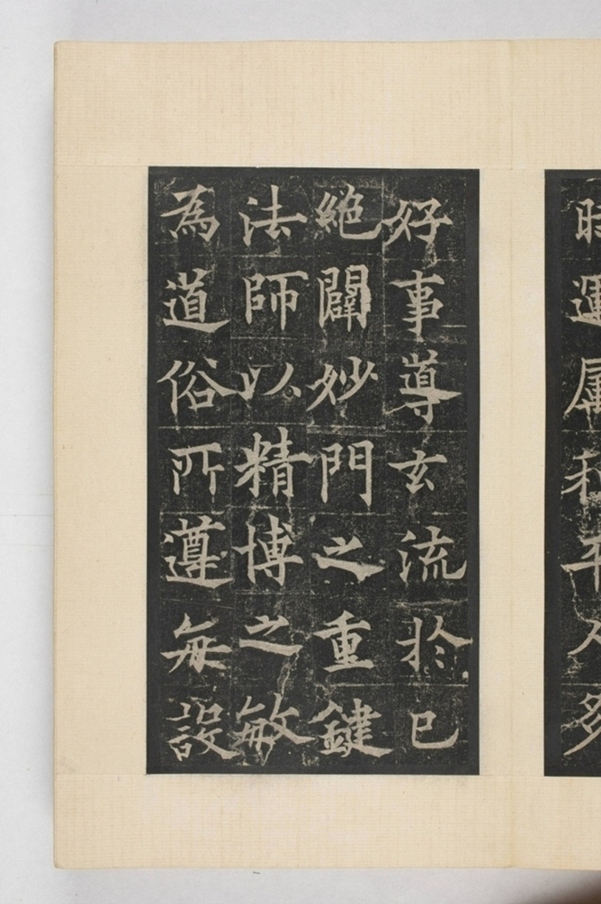 時運屬和平人多
好事導玄流於已
絶闢妙門之重鍵
法師以精博之敏
為道俗所遵每設